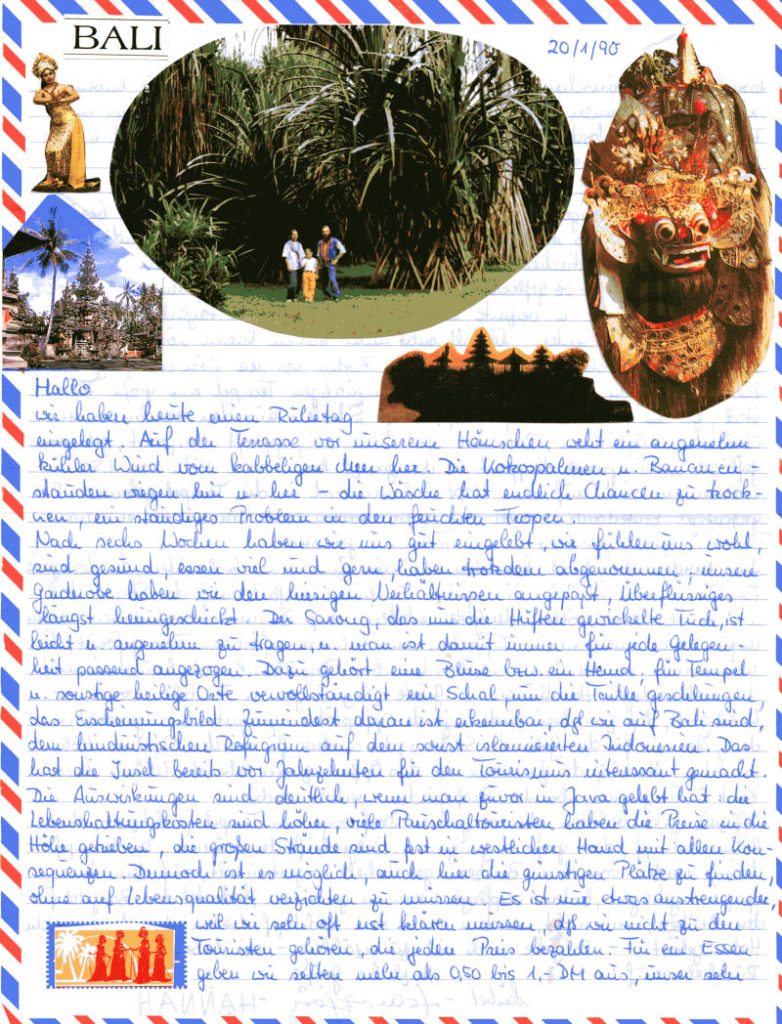 BALI
20/1/90
Hallo
wir haben heute einen Ruhetag
eingelegt. Auf der Terrasse vor unserem Häuschen weht ein angenehm
kühler Wind vom kabbeligen Meer her. Die Kokospalmen u. Bananen-
stauden wiegen hin u. her – die Wäsche hat endlich Chancen zu trock-
nen, ein ständiges Problem in den feuchten Tropen.
Nach sechs Wochen haben wir uns gut eingelebt, wir fühlen uns wohl,
sind gesund, essen viel und gern, haben trotzdem abgenommen, unsere
Garderobe haben wir den hiesigen Verhältnissen angepaßt, Überflüssiges
längst heimgeschickt. Der Sarong, das um die Hüften gewickelte Tuch, ist
leicht u. angenehm zu tragen, u. man ist damit immer für jede Gelegen-
heit passend angezogen. Dazu gehört eine Bluse bzw. ein Hemd, für Tempel
u. sonstige heilige Orte vervollständigt ein Schal, um die Taille geschlungen,
das Erscheinungsbild. Zumindest daran ist erkennbar, dß wir auf Bali sind,
dem hinduistischen Refugium auf dem sonst islamisierten Indonesien. Das
hat die Insel bereits vor Jahrzehnten für den Tourismus interessant gemacht.
Die Auswirkungen sind deutlich, wenn man zuvor in Java gelebt hat: die
Lebenshaltungskosten sind höher, viele Pauschaltouristen haben die Preise in die
Höhe getrieben, die großen Strände sind fest in westlicher Hand mit allen Kon-
sequenzen. Dennoch ist es möglich, auch hier die günstigen Plätze zu finden,
ohne auf Lebensqualität verzichten zu müssen. Es ist nur etwas anstrengender,
weil wir sehr oft erst klären müssen, dß wir nicht zu den
Touristen gehören, die jeden Preis bezahlen. Für ein Essen
geben wir selten mehr als 0,50 bis 1,- DM aus, unser sehr
HANNAH